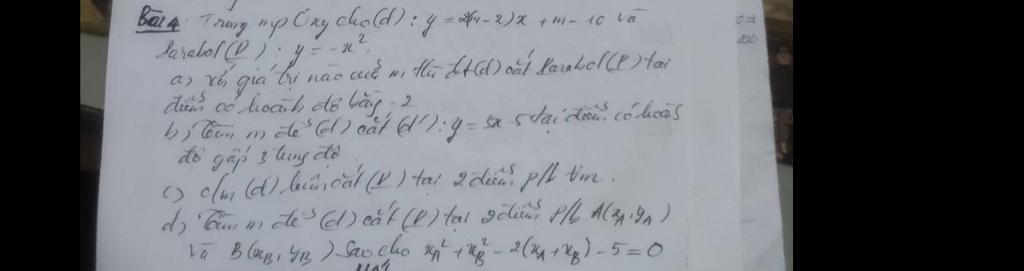 Bài 4: Trong mp Oxy cho (d): y = 2(m-2)x + m - 10 và
Parabol (P): y = -x².
a) với giá trị nào của m thì đt (d) cắt Parabol (P) tại
điểm có hoành độ bằng -2
b) Tìm m để (d) cắt (d'): y = 5x - 5 tại điểm có hoành
độ gấp 3 tung độ
c) c/m (d) luôn cắt (P) tại 2 điểm p/b ∀m.
d) Tìm m để (d) cắt (P) tại 2 điểm p/b A(xA, yA)
và B(xB, yB) sao cho xA² + xB² - 2(xA + xB) - 5 = 0